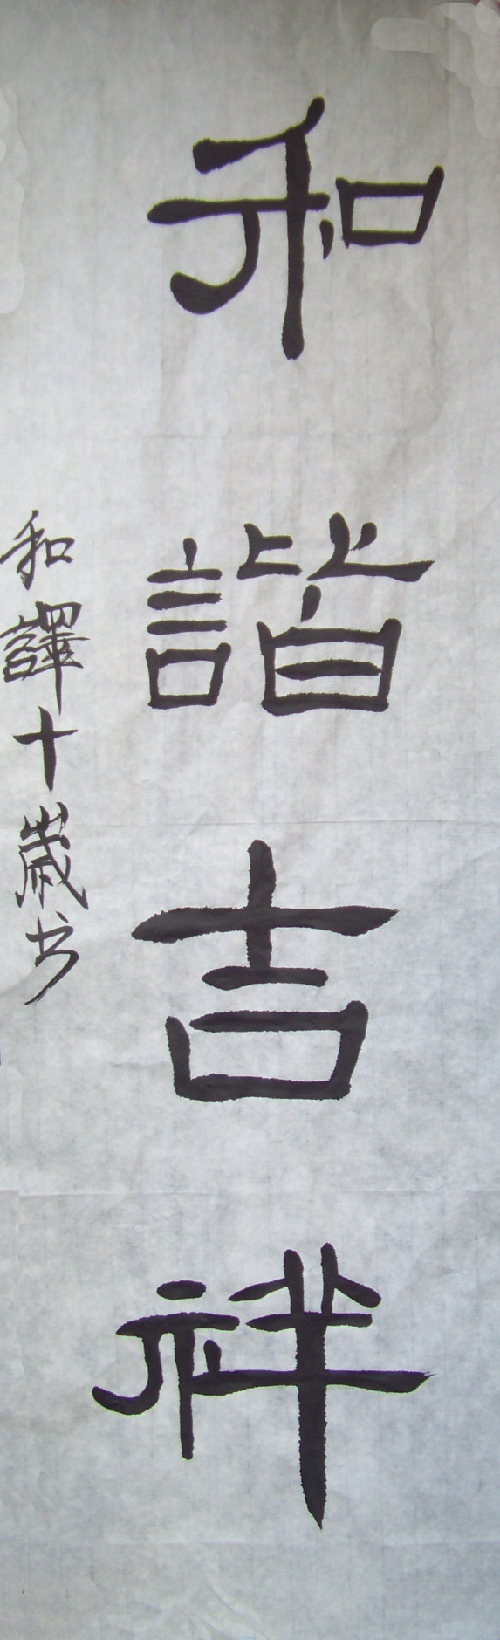 和諧吉祥
和譯十歲书